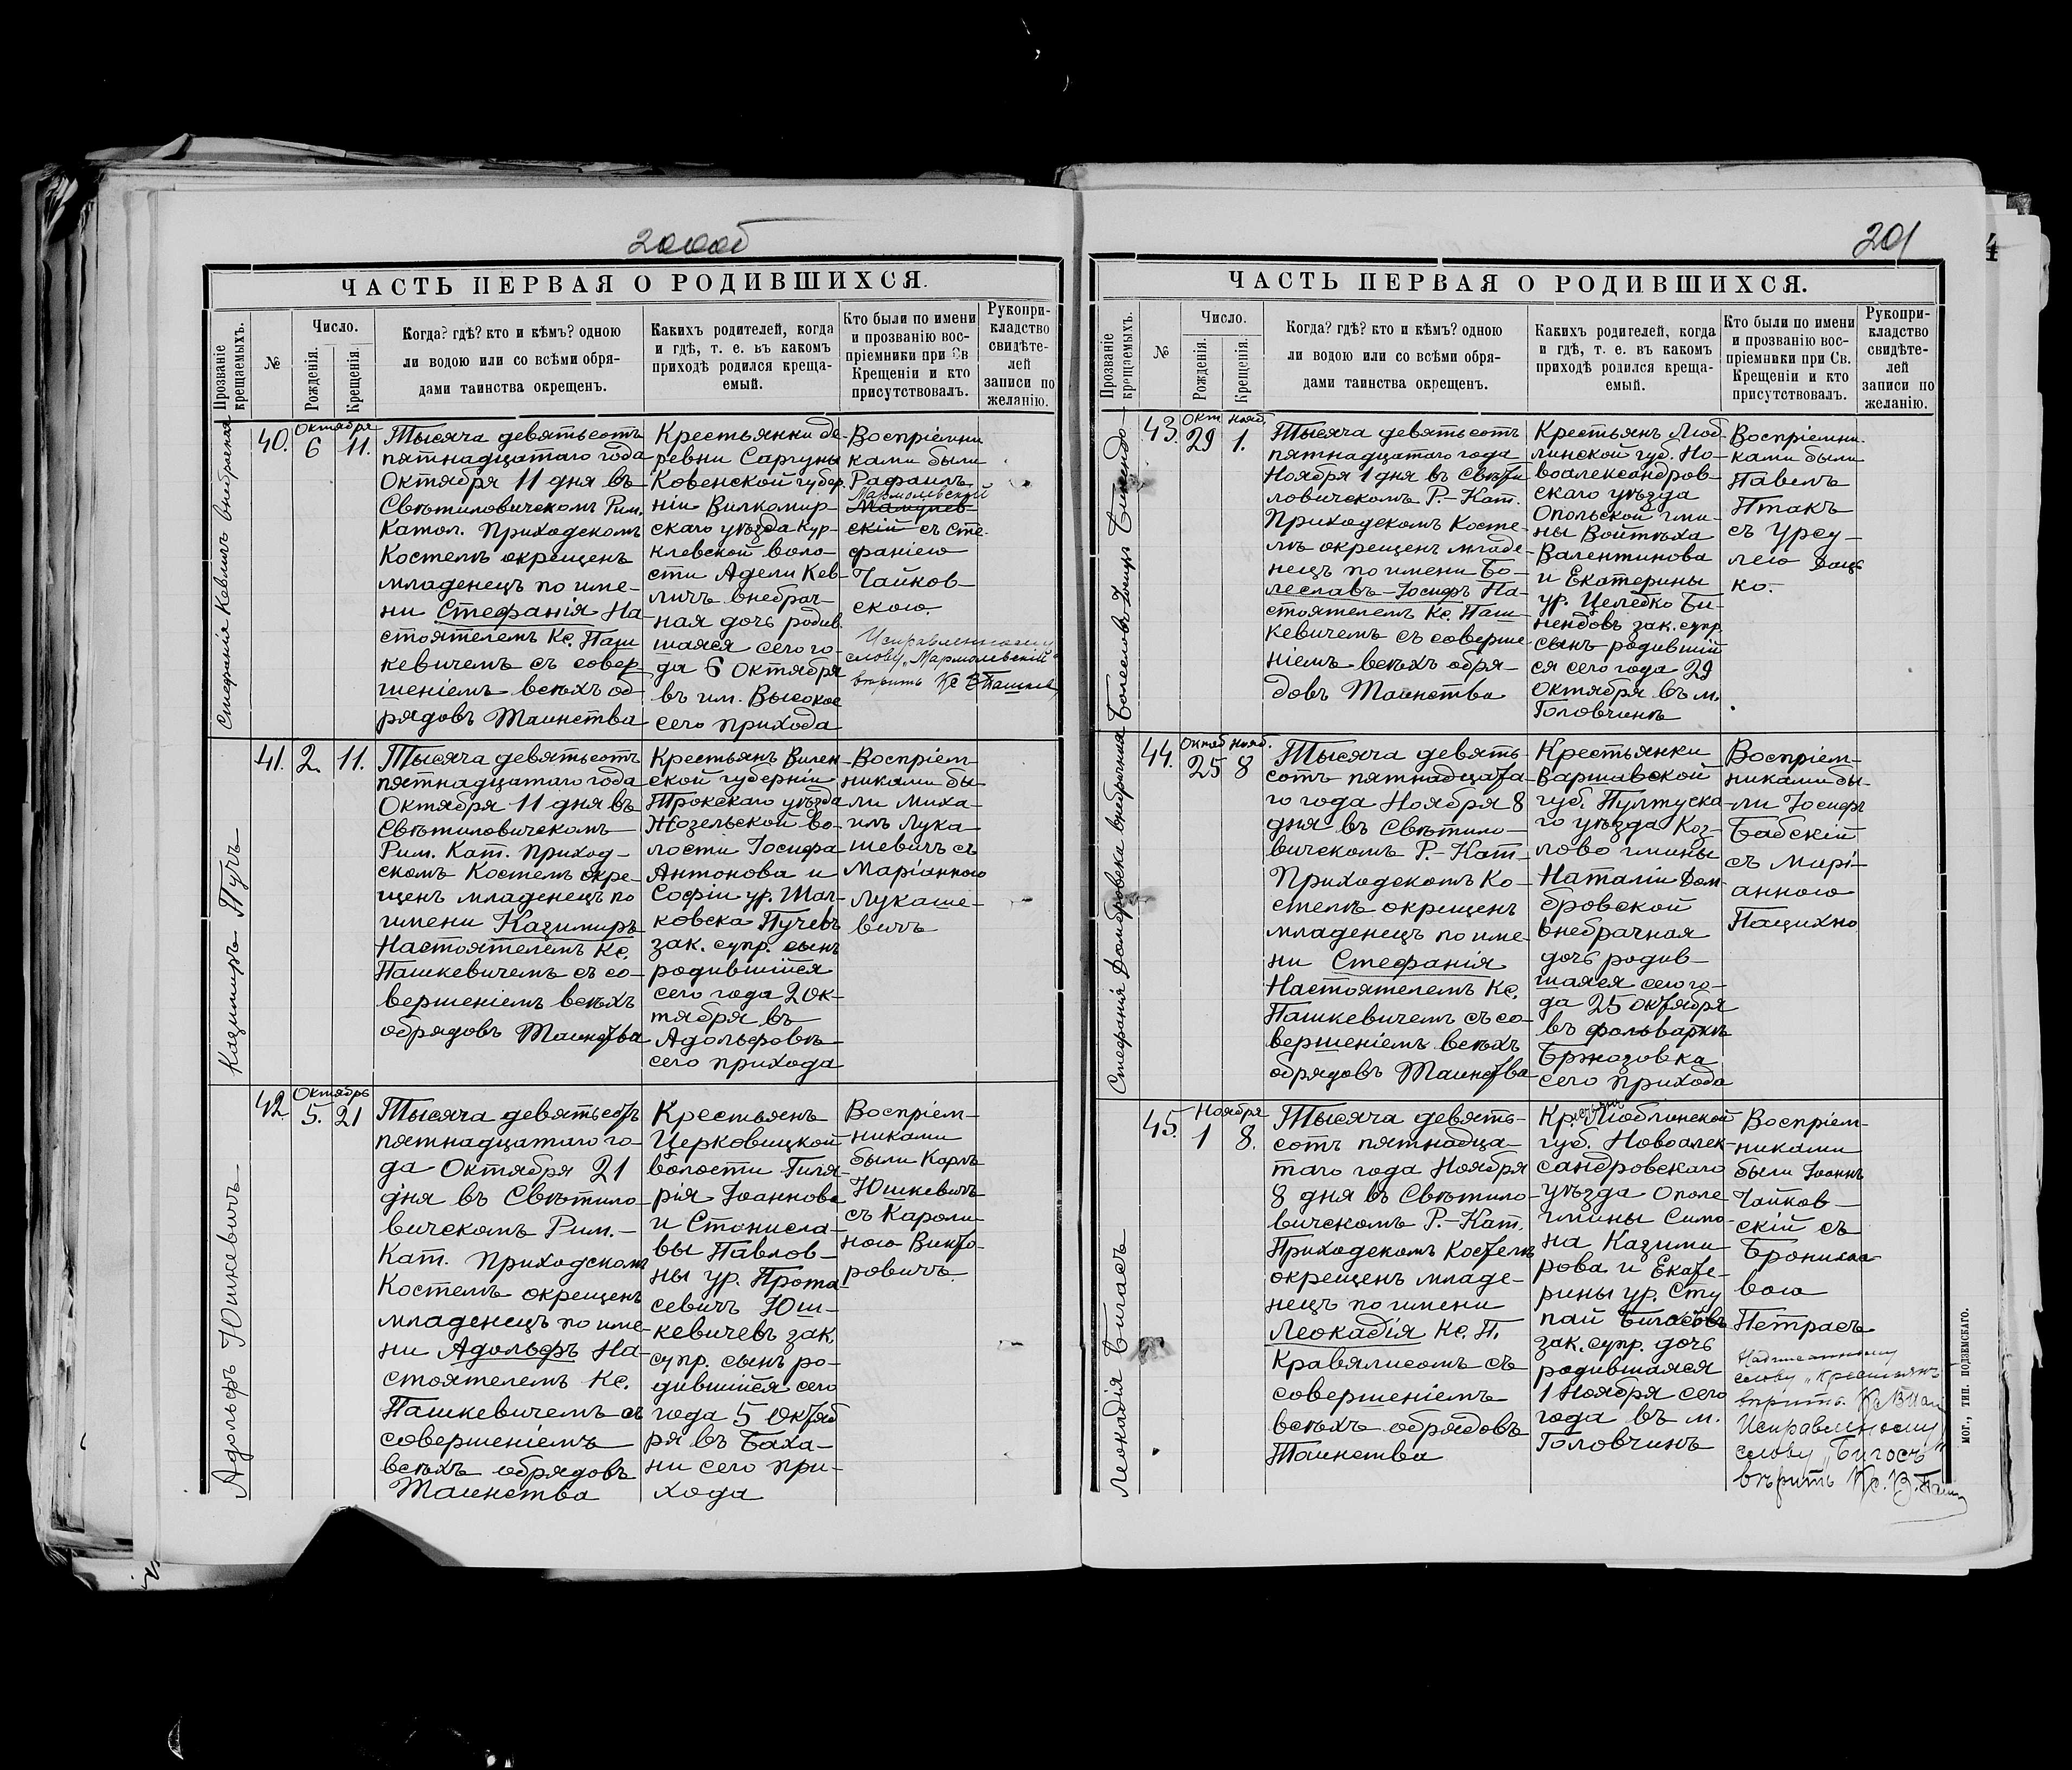 200об
ЧАСТЬ ПЕРВАЯ О РОДИВШИХСЯ.
Прозваніе крещаемыхъ.
№
Число.
Рожденія.
Крещенія.
Когда? гдѣ? кто и кѣмъ? одною
ли водою или со всѣми обря-
дами таинства окрещенъ.
Какихъ родителей, когда
и гдѣ, т. е. въ какомъ
приходѣ родился креща-
емый.
Кто были по имени
и прозванію вос-
пріемники при Св
Крещеніи и кто
присутствовалъ.
Рукопри-
кладство
свидѣте-
лей
записи по
желанію.
Стефанія Кевличъ внебрачная
40.
Октября
6
11.
Тысяча девятьсотъ
пятнадцатаго года
Октября 11 дня въ
Свѣтиловичскомъ Рим.
Катол. Приходскомъ
Костелѣ окрещенъ
младенецъ по име-
ни Стефанія На-
стоятелемъ Кс. Паш
кевичемъ съ совер-
шеніемъ всѣхъ об-
рядовъ Таинства
Крестьянки де-
ревни Саргуны
Ковенской губер.
ніи Вилкомир-
скаго уѣзда Кур-
клевской воло-
сти Адели Кев-
личъ внебрач-
ная дочь родив.
шаяся сего го-
да 6 Октября
въ им. Высокое
сего прихода
Воспріемни
ками были
Рафаилъ
Мармолевскій
скій съ Сте-
фаніею
Чайков-
скою.
Исправленному
слову „Мармолевскій“
вѣрить Кс В Пашкев
Казимиръ Пучъ
41.
2.
11.
Тысяча девятьсотъ
пятнадцатаго года
Октября 11 дня въ
Свѣтиловичскомъ
Рим. Кат. Приход-
скомъ Костелѣ окре-
щенъ младенецъ по
имени Казимиръ
Настоятелемъ Кс.
Пашкевичемъ съ со-
вершеніемъ всѣхъ
обрядовъ Таинства
Крестьянъ Вилен
ской губерніи
Трокскаго уѣзда
Жозельской во-
лости Іосифа
Антонова и
Софіи ур. Шал-
ковска Пучевъ
зак. супр. сынъ
родившійся
сего года 2 Ок-
тября въ
Адольфовѣ
сего прихода
Воспріем-
никами бы-
ли Миха-
илъ Лука
шевичъ съ
Маріанною
Лукаше-
вичъ
Адольфъ Юшкевичъ
42
Октябрь
5.
21
Тысяча девятьсотъ
пятнадцатаго го-
да Октября 21
дня въ Свѣтило-
вичскомъ Рим.-
Кат. Приходскомъ
Костелѣ окрещенъ
младенецъ по име-
ни Адольфъ На-
стоятелемъ Кс.
Пашкевичемъ съ
совершеніемъ
всѣхъ обрядовъ
Таинства
Крестьянъ
Церковищкой
волости Гиля-
рія Іоаннова
и Станисла-
вы Павлов-
ны ур. Прота-
севичъ Юш-
кевичевъ зак.
супр. сынъ ро-
дившійся сего
года 5 Октяб
ря въ Баха-
ни сего при-
хода
Воспріем-
никами
были Карлъ
Юшкевичъ
съ Кароли-
ною Викто-
ровичъ.
201
4
ЧАСТЬ ПЕРВАЯ О РОДИВШИХСЯ.
Прозваніе крещаемыхъ.
№
Число.
Рожденія.
Крещенія.
Когда? гдѣ? кто и кѣмъ? одною
ли водою или со всѣми обря-
дами таинства окрещенъ.
Какихъ родителей, когда
и гдѣ, т. е. въ какомъ
приходѣ родился креща-
емый.
Кто были по имени
и прозванію вос-
пріемники при Св.
Крещеніи и кто
присутствовалъ.
Рукопри-
кладство
свидѣте-
лей
записи по
желанію.
Болеславъ-Іосифъ
43.
Окт
29
Нояб.
1.
Тысяча девятьсотъ
пятнадцатаго года
Ноября 1 дня въ Свѣти
ловичскомъ Р.-Кат.
Приходскомъ Косте-
лѣ окрещенъ младе-
нецъ по имени Бо-
леславъ-Іосифъ На-
стоятелемъ Кс. Паш-
кевичемъ съ соверше
ніемъ всѣхъ обря-
довъ Таинства
Крестьянъ Люб
линской губ. Но-
воалександров-
скаго уѣзда
Опольской гми-
ны Войтѣха
Валентинова
и Екатерины
ур. Целебко Би-
нендовъ зак. супр
сынъ родившій
ся сего года 29
Октября въ м.
Головчинѣ
Воспріемни-
ками были
Павелъ
Птакъ
съ Урсу-
лею
ко.
Стефанія Домбровска внебрачная
44.
Октяб
25
Нояб.
8
Тысяча девять-
сотъ пятнадцата-
го года Ноября 8
дня въ Свѣтило-
вичскомъ Р.-Кат.
Приходскомъ Ко-
стелѣ окрещенъ
младенецъ по име-
ни Стефанія
Настоятелемъ Кс.
Пашкевичемъ съ со-
вершеніемъ всѣхъ
обрядовъ Таинства
Крестьянки
Варшавской
губ. Пултуска-
го уѣзда Коз-
лово гмины
Наталіи Дом-
бровской
внебрачная
дочь родив-
шаяся сего го-
да 25 октября
въ фольваркѣ
Бржозовка
сего прихода
Воспріем-
никами бы-
ли Іосифъ
Бабскій
съ Марі-
анною
Пацихно
Леокадія Бигасъ
45.
Ноября
1
8.
Тысяча девять-
сотъ пятнадца-
таго года Ноября
8 дня въ Свѣтило-
вичскомъ Р.-Кат.
Приходскомъ Костелѣ
окрещенъ младе-
нецъ по имени
Леокадія Кс. П.
Кравялисомъ съ
совершеніемъ
всѣхъ обрядовъ
Таинства
Крестьянъ Люблинской
губ. Новоалек-
сандровскаго
уѣзда Ополе
гмины Симо-
на Казими
рова и Екате-
рины ур. Сту
пай Бигосовъ
зак. супр. дочь
родившаяся
1 Ноября сего
года въ м.
Головчинъ
Воспріем-
никами
были Іоаннъ
Чайков-
скій съ
Бронисла
вою
Петрасъ
Надписанному
слову „крестьянъ
вѣрить. Кс В Паш
Исправленному
слову „Бигосъ“
вѣрить Кс. В. Паш
МОГ., ТИП. ПОДЗЕМСКАГО.